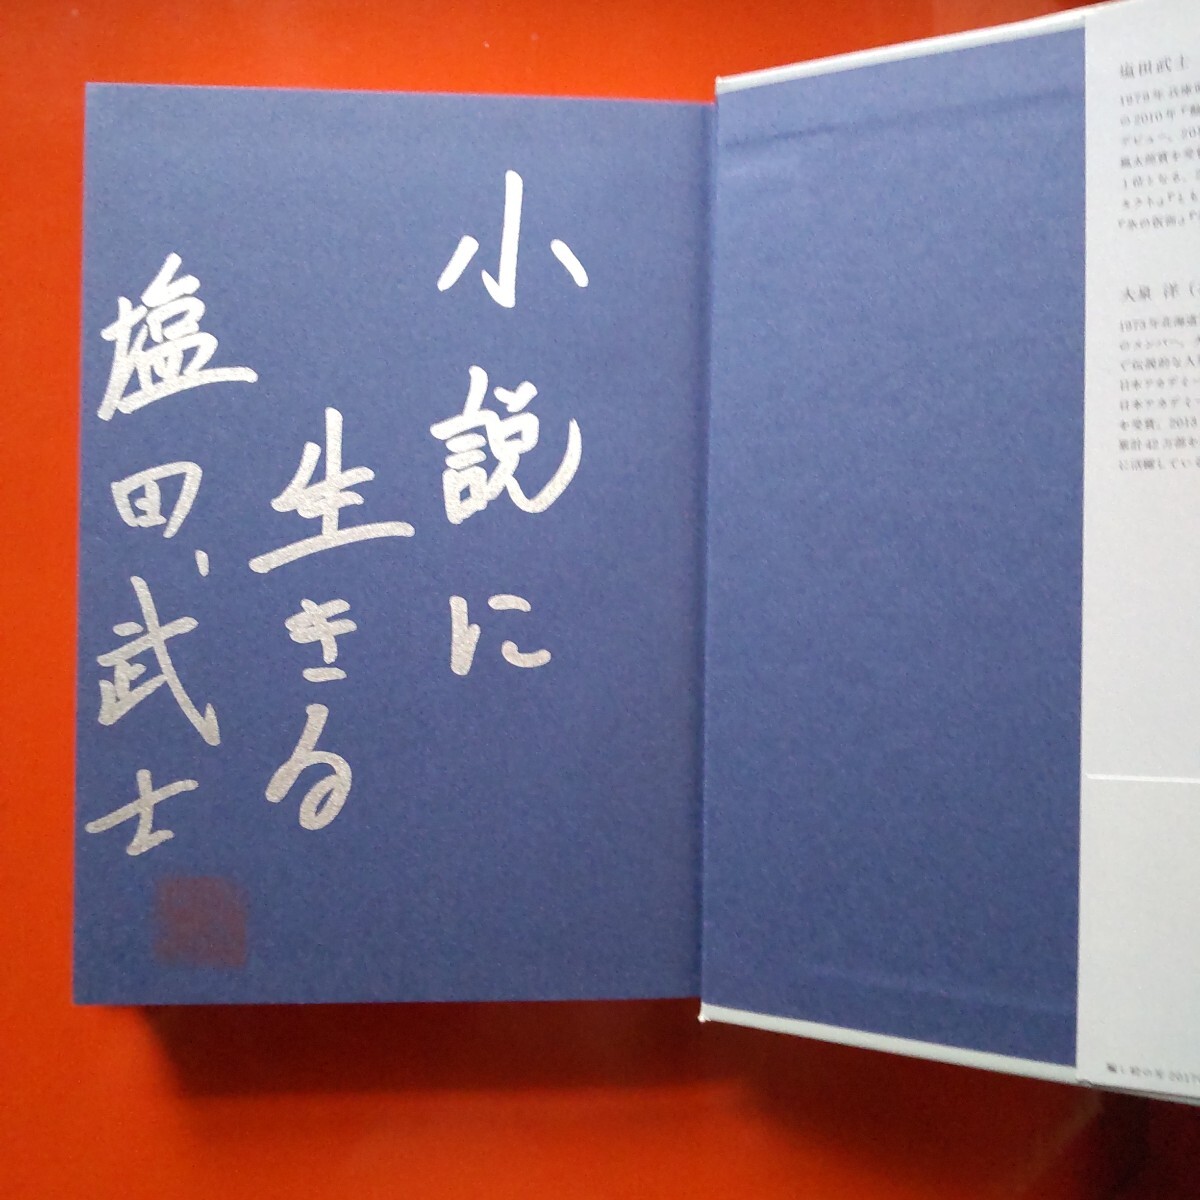 小説に
生きる
塩田武士
塩田武士
1979年兵庫
の2010年『
デビュー。20
風太郎賞を受
1位となる。
『氷の仮面』
大泉 洋
1973年北海道
のメンバー。
で伝説的な人
日本アカデミー
日本アカデミー
を受賞。2013
累計42万部を
に活躍している
騙し絵の牙2017